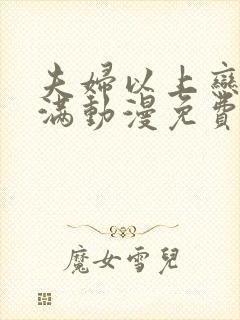 夫婦以上戀
滿動漫免費
魔女雪兒